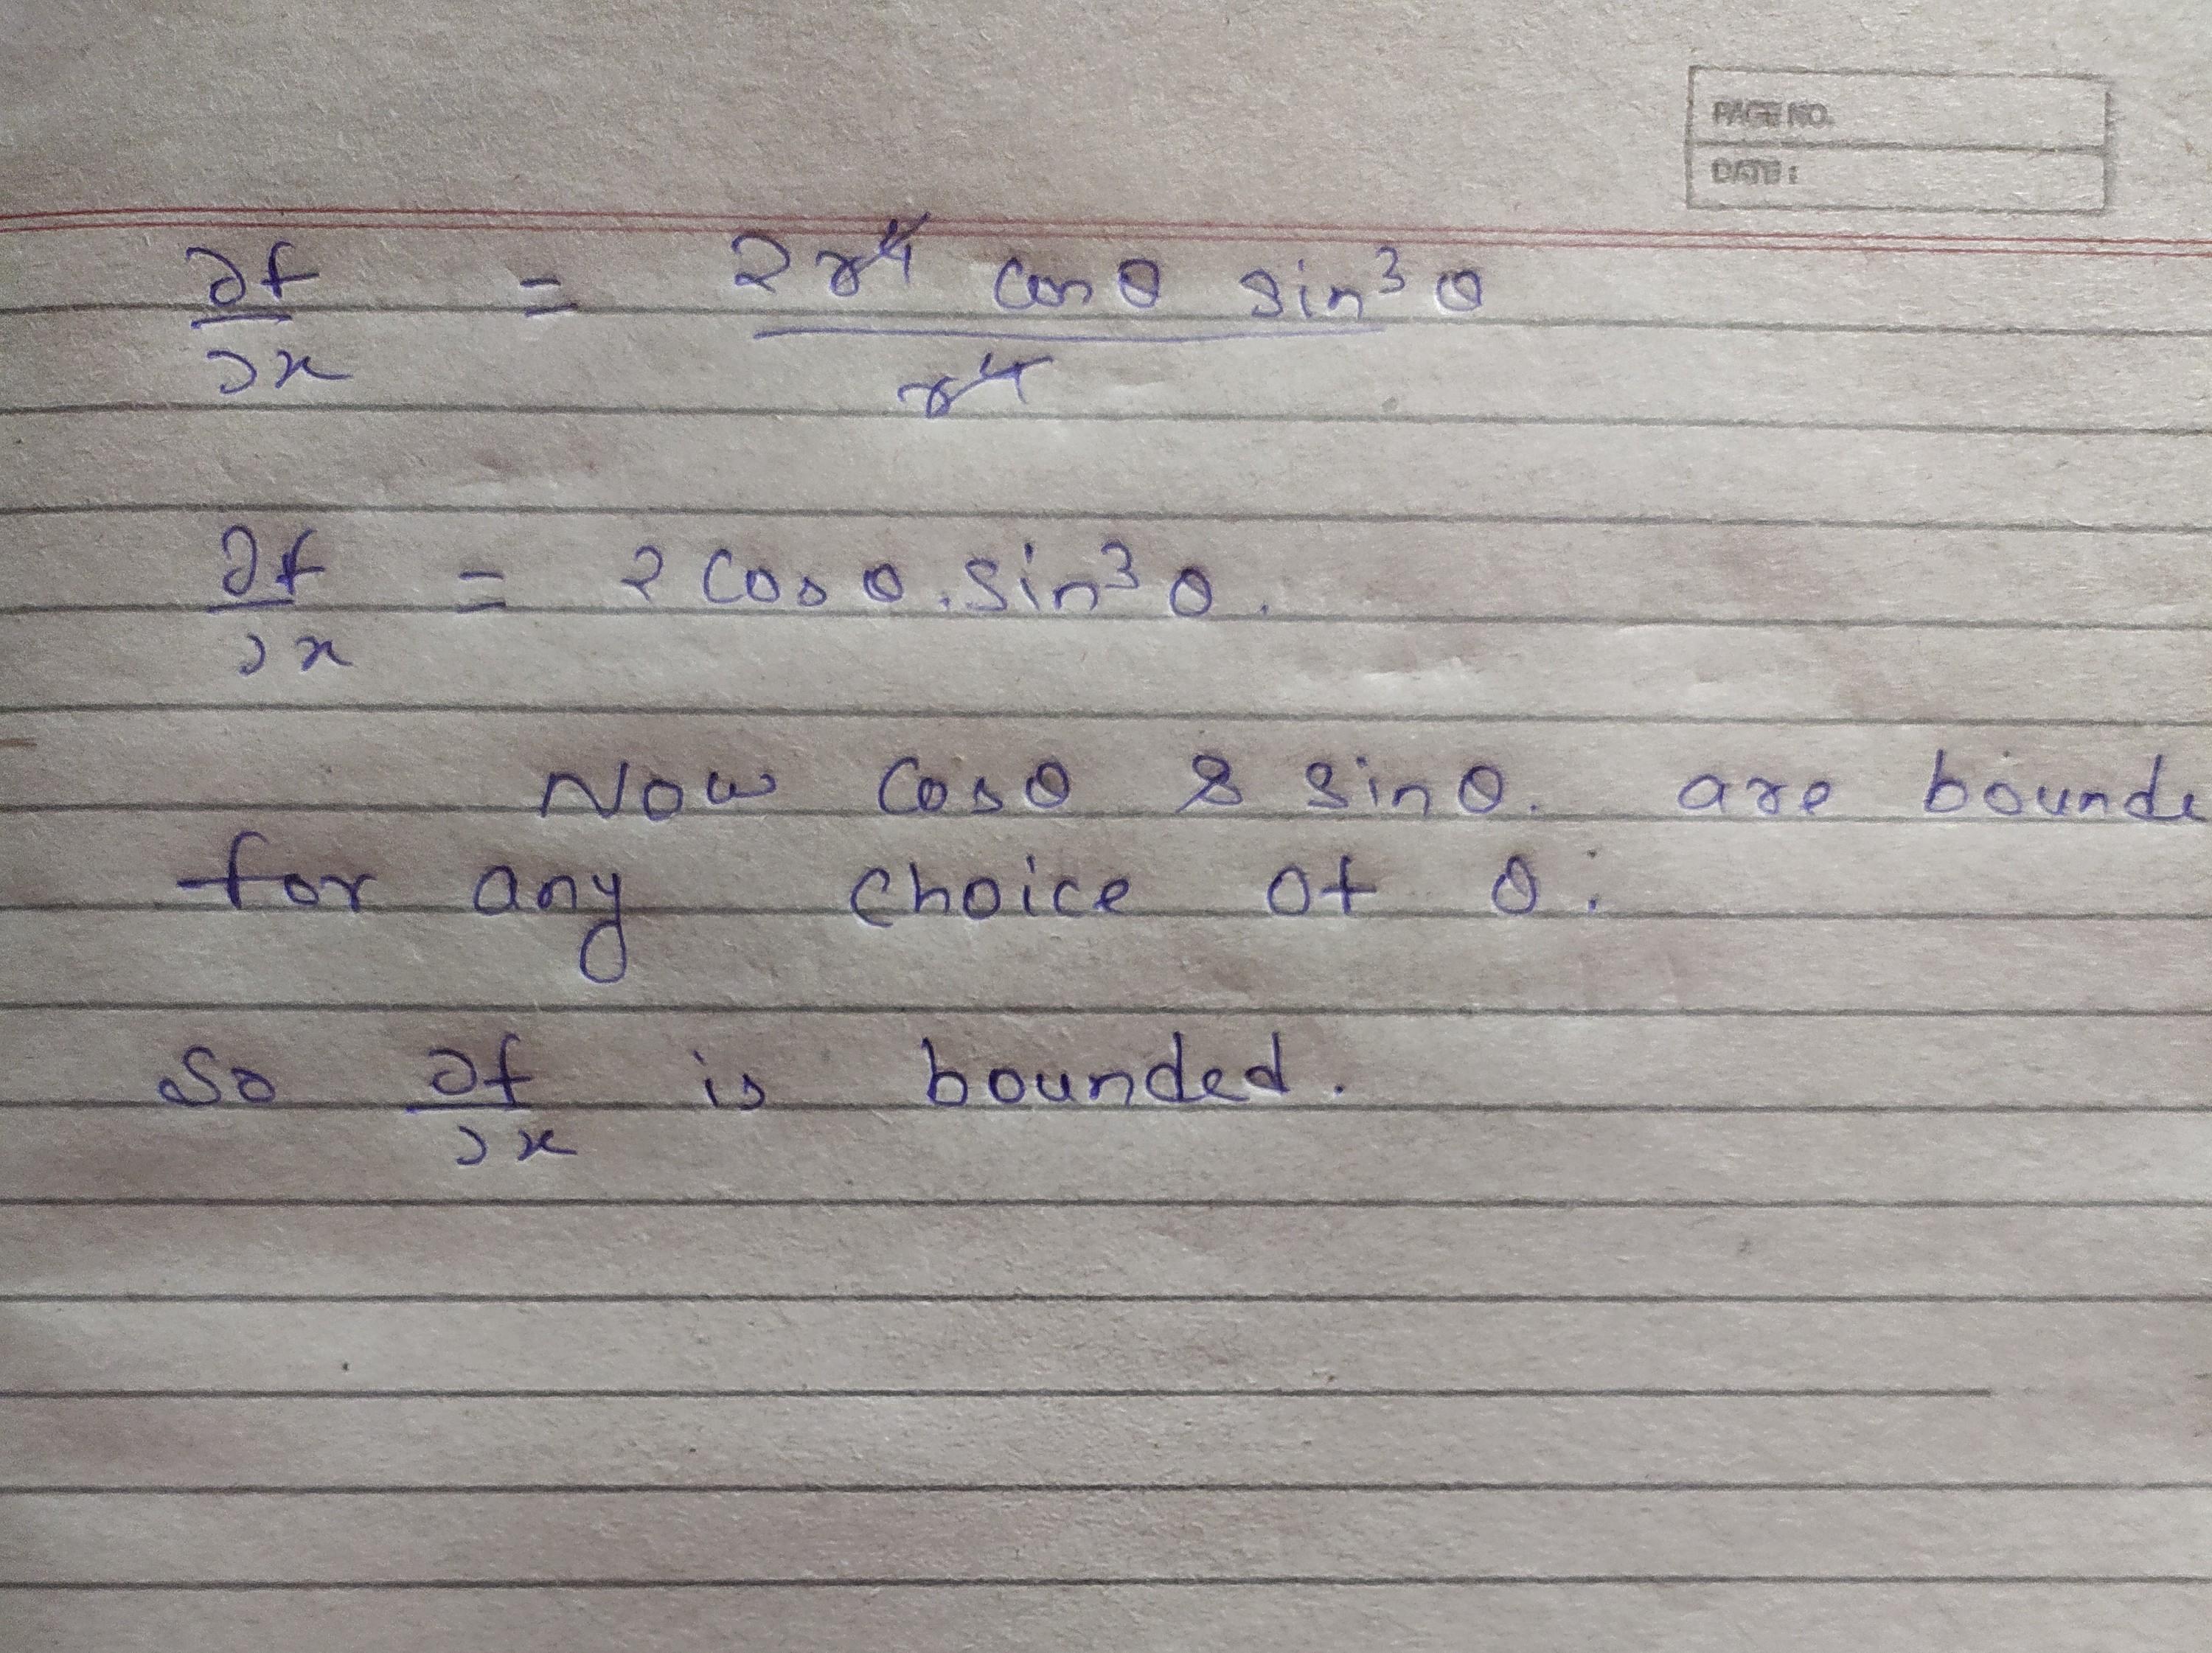 PAGE NO.
DATE :
∂f/∂x = 2r⁴ cos θ sin³ θ / r⁴
∂f/∂x = 2 cos θ . sin³ θ .
Now cos θ & sin θ . are bounde
for any choice of θ .
So ∂f/∂x is bounded .